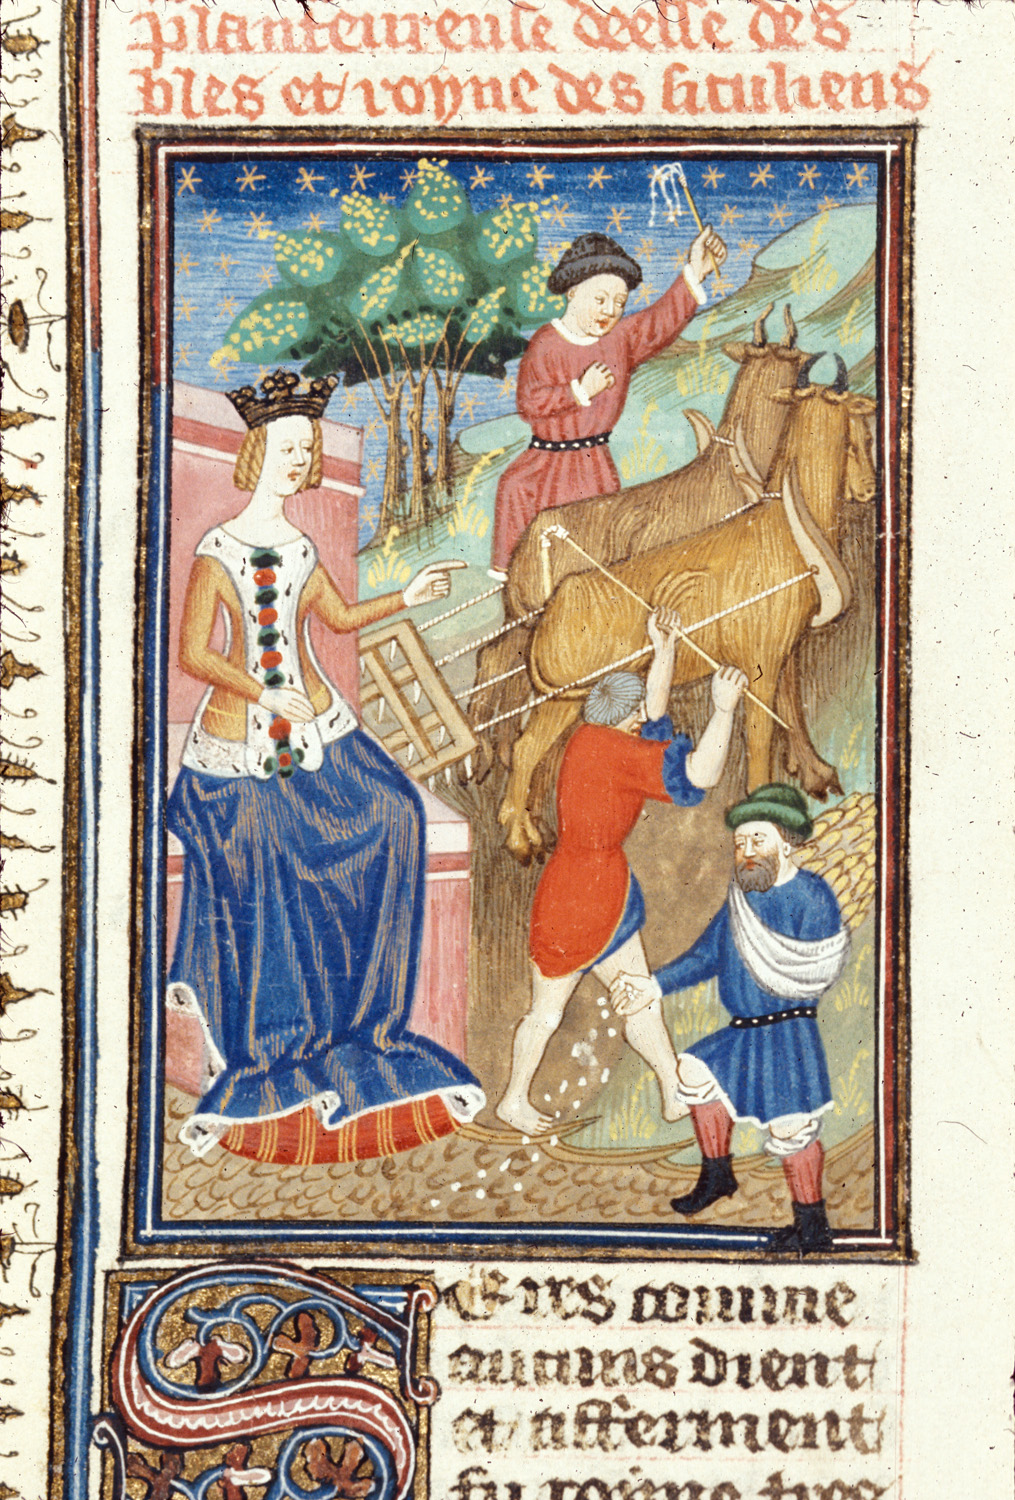 planteureuse deesse des
bles et royne des siculiens
Seres comme
aucuns dient
et afferment
fu royne tres